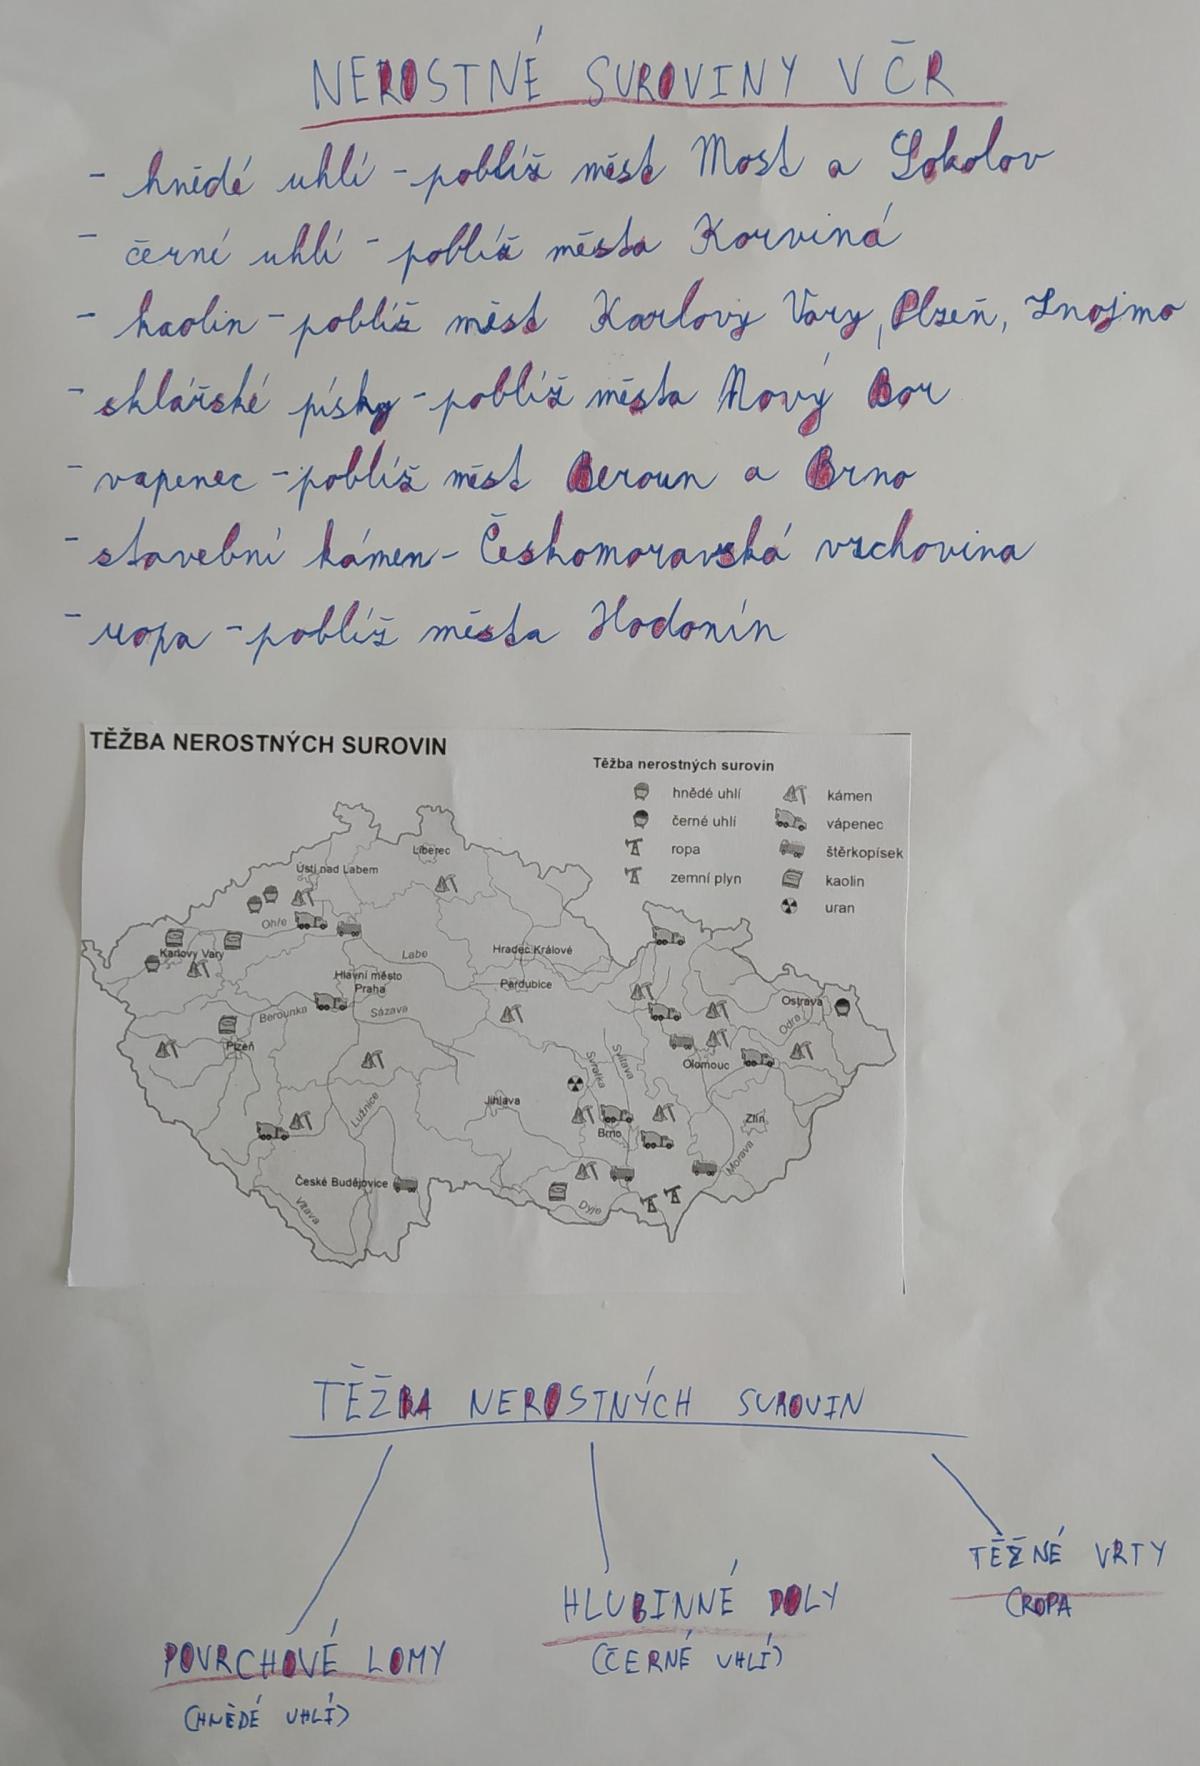 NEROSTNÉ SUROVINY V ČR
- hnědé uhlí - poblíž měst Most a Sokolov
- černé uhlí - poblíž města Korviná
- kaolin - poblíž měst Karlovy Vary, Plzeň, Znojmo
- sklářské písky - poblíž města Nový Bor
- vapenec - poblíž měst Beroun a Brno
- stavební kámen - Českomoravská vrchovina
- ropa - poblíž města Hodonín
TĚŽBA NEROSTNÝCH SUROVIN
Těžba nerostných surovin
hnědé uhlí
kámen
černé uhlí
vápenec
ropa
štěrkopísek
zemní plyn
kaolin
uran
Liberec
Ústí nad Labem
Ohře
Karlovy Vary
Labe
Hradec Králové
Hlavní město
Praha
Pardubice
Ostrava
Berounka
Sázava
Odra
Plzeň
Olomouc
Svratka
Svitava
Jihlava
Lužnice
Zlín
Brno
Morava
České Budějovice
Vltava
Dyje
TĚŽBA NEROSTNÝCH SUROVIN
TĚŽNÉ VRTY
(ROPA
HLUBINNÉ DOLY
(ČERNÉ UHLÍ)
POVRCHOVÉ LOMY
(HNĚDÉ UHLÍ)